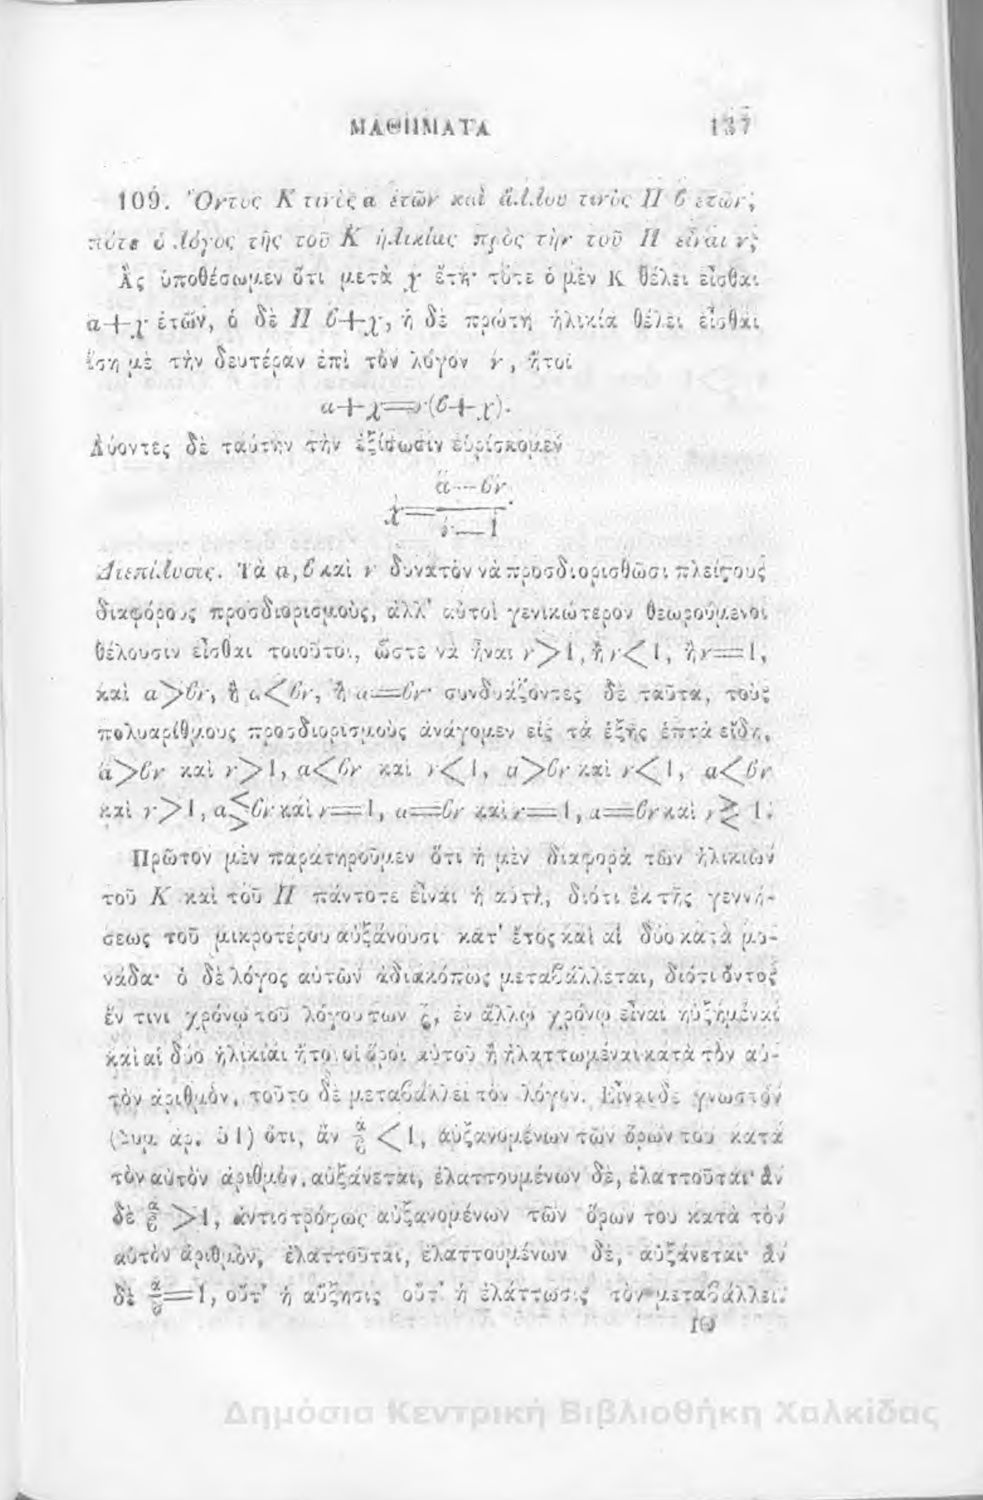 ΜΑΘΗΜΑΤΑ 137
109. Ὄντος Κ τινὸς α ἐτῶν καὶ ἄλλου τινὸς Π β ἐτῶν,
πότε ὁ λόγος τῆς τοῦ Κ ἡλικίας πρὸς τὴν τοῦ Π εἶναι ν;
Ἂς ὑποθέσωμεν ὅτι μετὰ χ ἔτη· τότε ὁ μὲν Κ θέλει εἶσθαι
α+χ ἐτῶν, ὁ δὲ Π β+χ, ἡ δὲ πρώτη ἡλικία θέλει εἶσθαι
ἴση μὲ τὴν δευτέραν ἐπὶ τὸν λόγον ν, ἤτοι
α+χ=ν(β+χ).
Λύοντες δὲ ταύτην τὴν ἐξίσωσιν εὑρίσκομεν
α—βν
χ=———.
ν—1
Διεπίλυσις. Τὰ α, β καὶ ν δυνατὸν νὰ προσδιορισθῶσι πλείστους
διαφόρους προσδιορισμοὺς, ἀλλ' αὐτοὶ γενικώτερον θεωρούμενοι
θέλουσιν εἶσθαι τοιοῦτοι, ὥστε νὰ ἦναι ν>1, ἢ ν<1, ἢ ν=1,
καὶ α>βν, ἢ α<βν, ἢ α=βν· συνδυάζοντες δὲ ταῦτα, τοὺς
πολυαρίθμους προσδιορισμοὺς ἀνάγομεν εἰς τὰ ἑξῆς ἑπτὰ εἴδη,
α>βν καὶ ν>1, α<βν καὶ ν<1, α>βν καὶ ν<1, α<βν
καὶ ν>1, α≶βν καὶ ν=1, α=βν καὶ ν=1, α=βν καὶ ν≷1.
Πρῶτον μὲν παρατηροῦμεν ὅτι ἡ μὲν διαφορὰ τῶν ἡλικιῶν
τοῦ Κ καὶ τοῦ Π πάντοτε εἶναι ἡ αὐτὴ, διότι ἐκ τῆς γεννή-
σεως τοῦ μικροτέρου αὐξάνουσι κατ' ἔτος καὶ αἱ δύο κατὰ μο-
νάδα· ὁ δὲ λόγος αὐτῶν ἀδιακόπως μεταβάλλεται, διότι ὄντος
ἔν τινι χρόνῳ τοῦ λόγου των ξ, ἐν ἄλλῳ χρόνῳ εἶναι ηὐξημέναι
καὶ αἱ δύο ἡλικίαι ἤτοι οἱ ὅροι αὐτοῦ ἢ ἠλαττωμέναι κατὰ τὸν αὐ-
τὸν ἀριθμὸν, τοῦτο δὲ μεταβάλλει τὸν λόγον. Εἶναι δὲ γνωστὸν
(Συμ. ἀρ. 51) ὅτι, ἂν α/β <1, αὐξανομένων τῶν ὅρων του κατὰ
τὸν αὐτὸν ἀριθμὸν, αὐξάνεται, ἐλαττουμένων δὲ, ἐλαττοῦται· ἂν
δὲ α/β >1, ἀντιστρόφως αὐξανομένων τῶν ὅρων του κατὰ τὸν
αὐτὸν ἀριθμὸν, ἐλαττοῦται, ἐλαττουμένων δὲ, αὐξάνεται· ἂν
δὲ α/β=1, οὔτ' ἡ αὔξησις οὔτ' ἡ ἐλάττωσις τὸν μεταβάλλει.
10
Δημόσια Κεντρική Βιβλιοθήκη Χαλκίδας